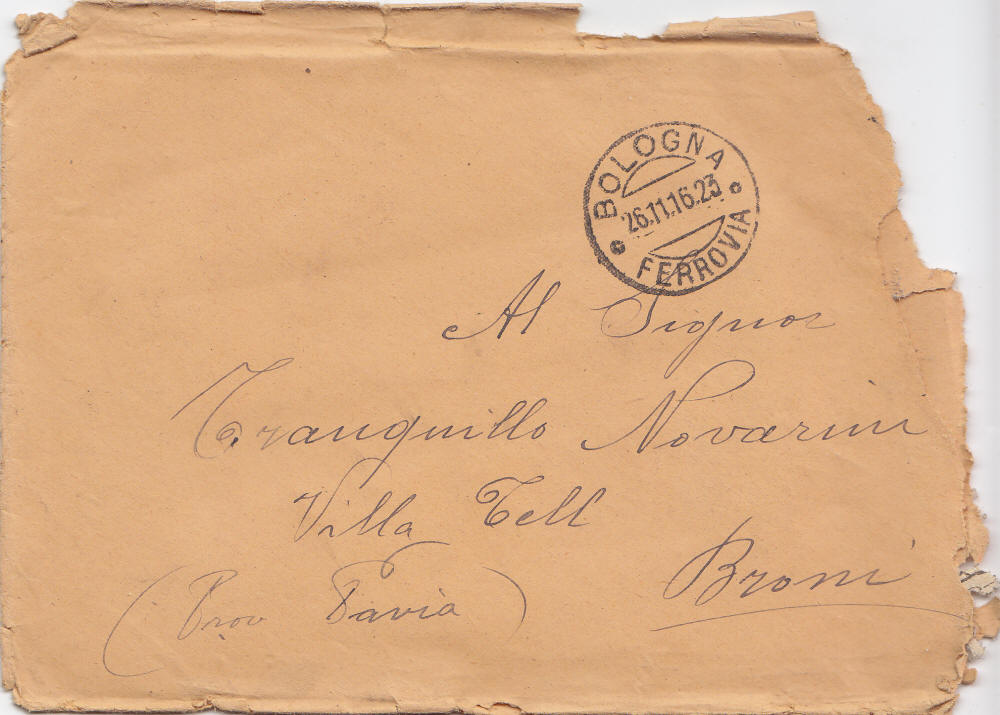 BOLOGNA
26.11.16.23
FERROVIA
Al Signor
Tranquillo Novarini
Villa Tell
Broni
(Prov Pavia)